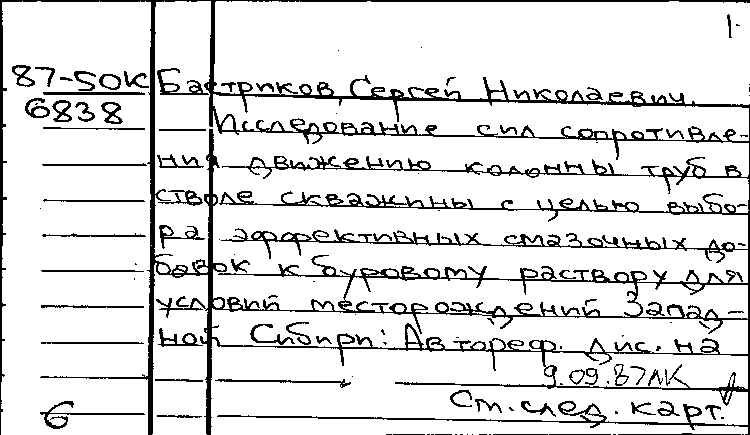 1.
87-50К Бастриков, Сергей Николаевич.
6838 Исследование сил сопротивле-
ния движению колонны труб в
стволе скважины с целью выбо-
ра эффективных смазочных до-
бавок к буровому раствору для
условий месторождений Запад-
ной Сибири: Автореф. дис. на
9.09.87ЛК
б Ст. след. карт.